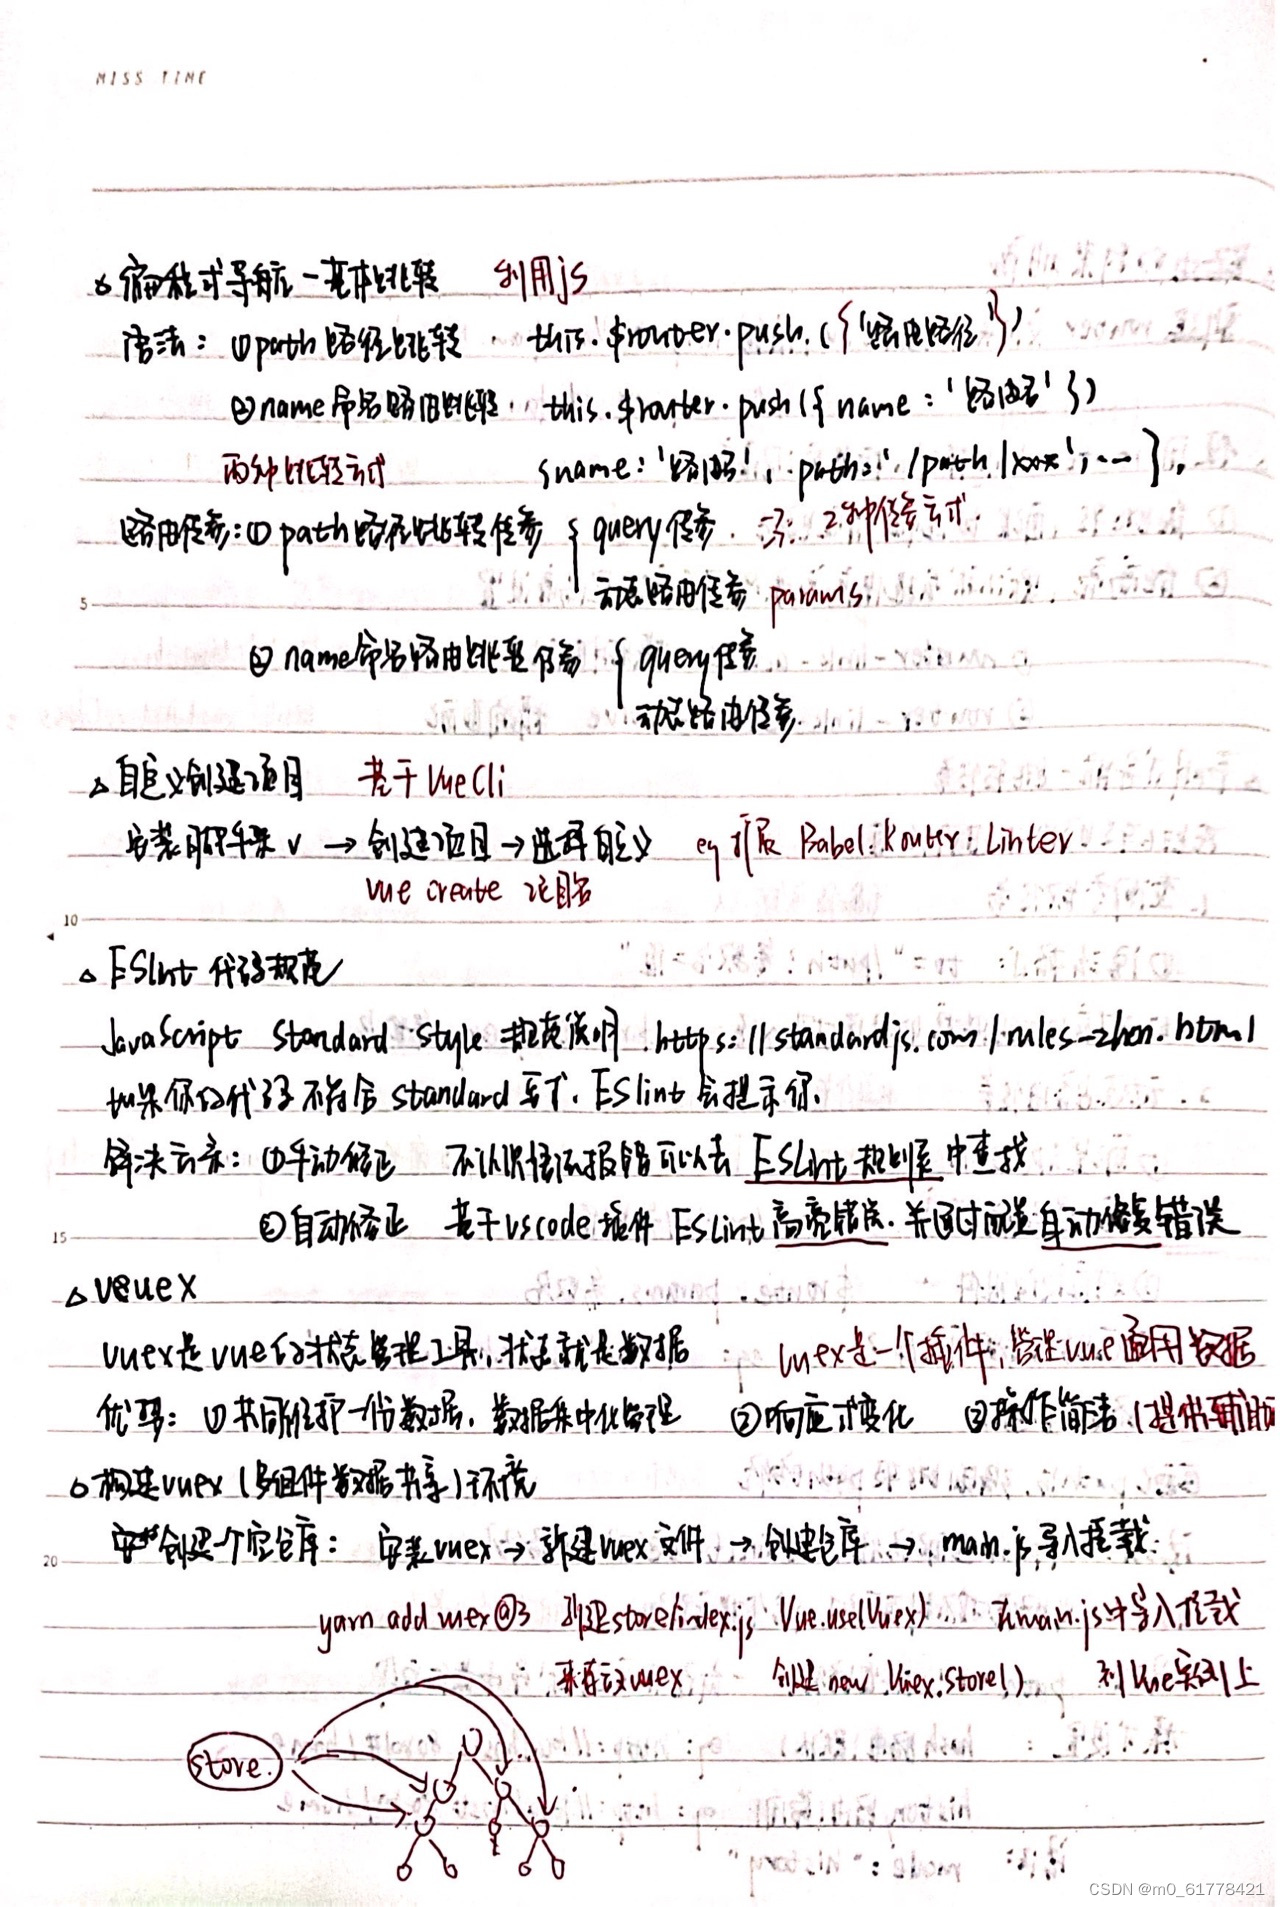 MISS TIME
编程式导航-基本跳转 利用js
语法: ①path路径跳转 this.$router.push({'路由路径'})
②name命名路由跳转 this.$router.push({name:'路由名'})
两种跳转方式 {name:'路由名', path:'/path/xxx', ...},
路由传参:①path路径跳转传参 { query传参 2种传参方式
动态路由传参 params
② name命名路由跳转传参 { query传参
动态路由传参
△ 自定义创建项目 基于VueCli
安装脚手架 → 创建项目 → 选择自定义 eg 扩展 Babel.Router.Linter
vue create 项目名
△ ESlint 代码规范
JavaScript Standard Style 规范说明 https://standardjs.com/rules-zhcn.html
如果你的代码不符合standard要求, ESlint会提示你.
解决方案: ①手动修正 不认识错误报错可以去 ESLint规则表 中查找
②自动修正 基于vscode插件 ESLint高亮错误. 并通过配置自动修复错误
△ vuex
vuex是vue的状态管理工具, 状态就是数据 vuex是一个插件, 管理vue通用数据
优势: ①共同维护一份数据, 数据集中化管理 ②响应式变化 ③操作简洁 (提供辅助
构建vuex (多组件数据共享) 环境
创建一个空仓库: 安装vuex → 新建vuex文件 → 创建仓库 → main.js导入挂载
yarn add vuex@3 新建store/index.js Vue.use(Vuex) 在main.js中导入挂载
来存放vuex 创建new Vuex.Store() 到Vue实例上
store.
5
10
15
20
CSDN @m0_61778421